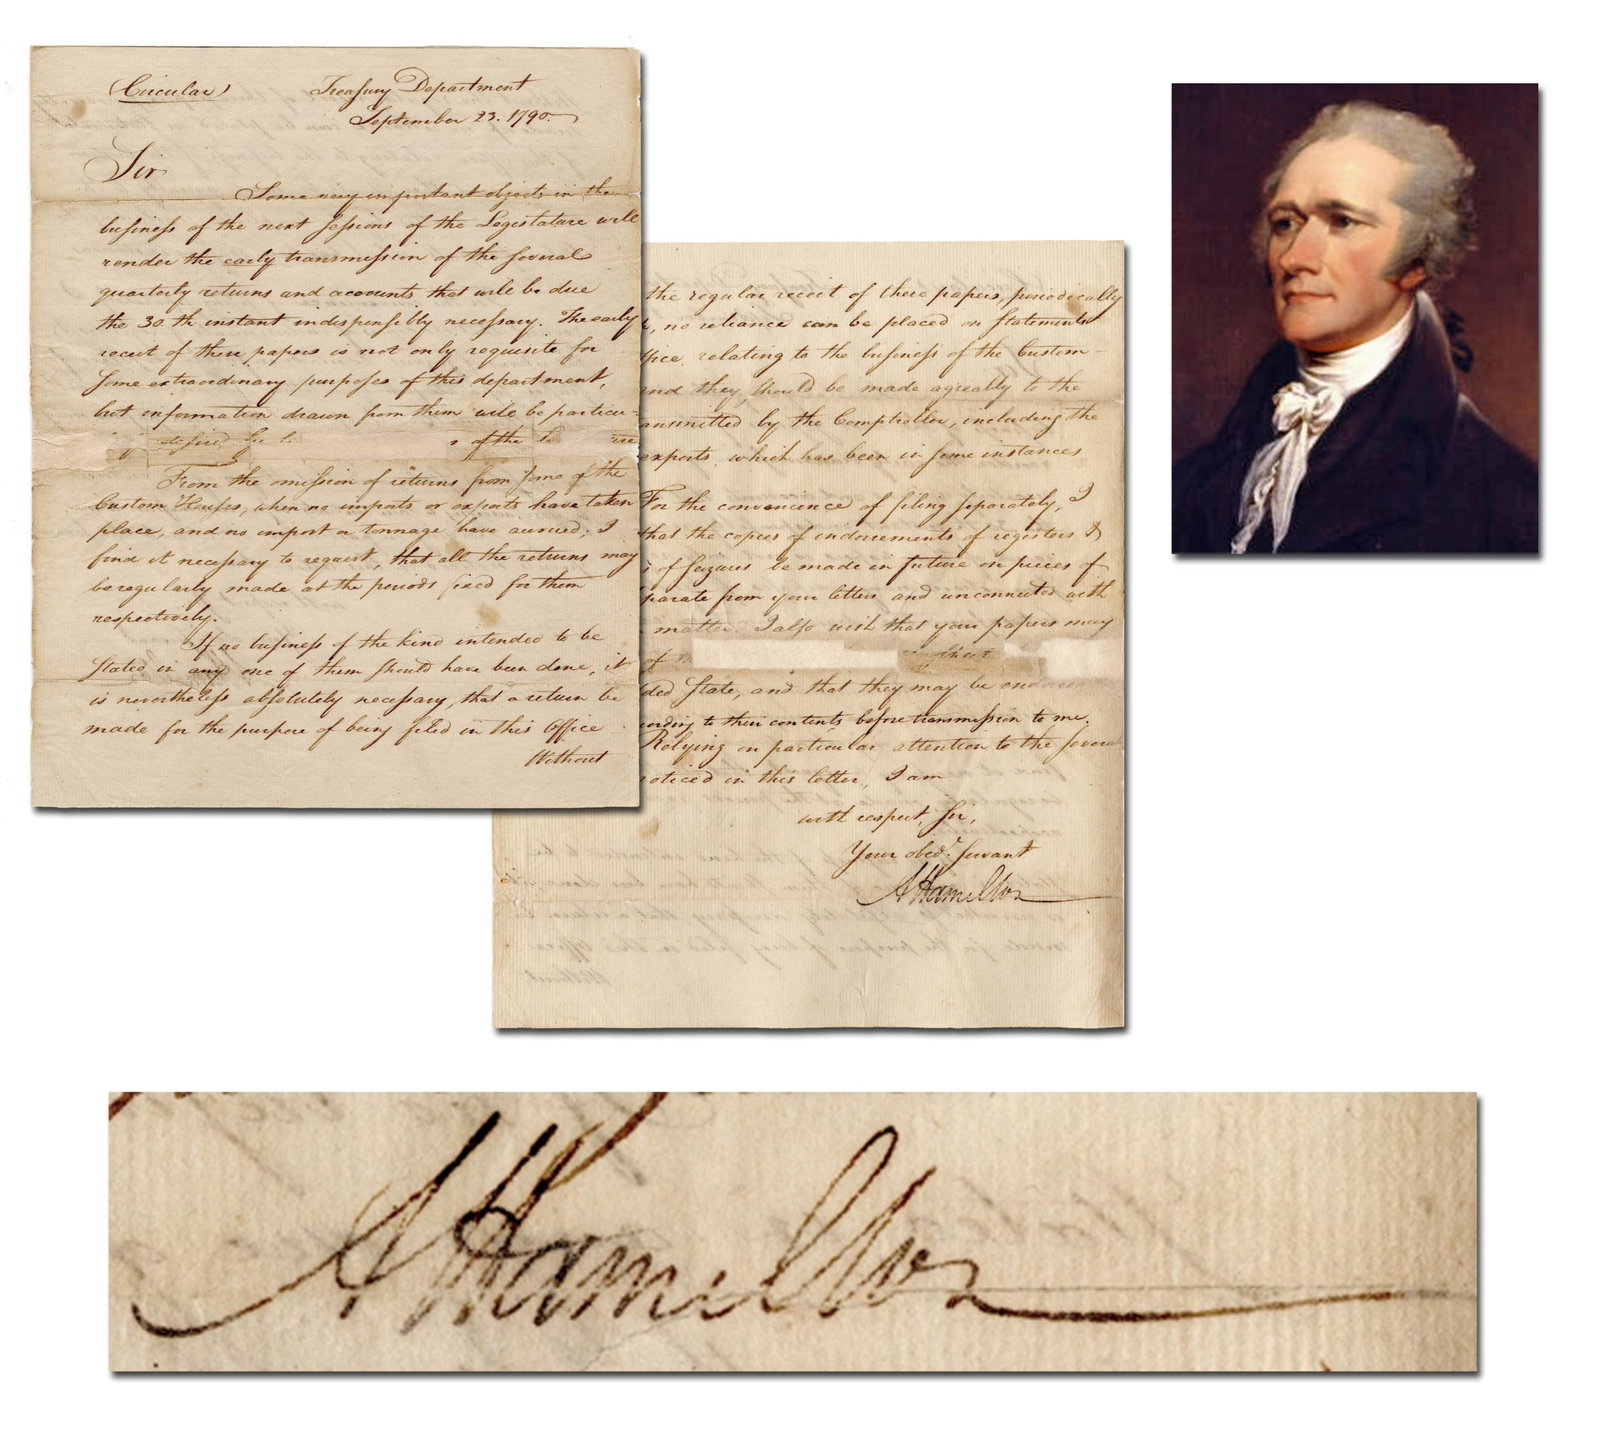 (Circular) Treasury Department
September 23. 1790.
Sir
Some very important objects in the
business of the next sessions of the Legislature will
render the early transmission of the several
quarterly returns and accounts that will be due
the 30th instant indispensibly necessary. The early
receit of these papers is not only requisite for
some extraordinary purposes of this department,
but information drawn from them will be particu-
desired of the
From the omission of returns from some of the
Custom Houses, when no imports or exports have taken
place, and no impost or tonnage have accrued, I
find it necessary to request, that all the returns may
be regularly made at the periods fixed for them
respectively.
If no business of the kind intended to be
stated in any one of them should have been done, it
is nevertheless absolutely necessary, that a return be
made for the purpose of being filed in this Office
Without
the regular receit of these papers, periodically
no reliance can be placed on statements
relating to the business of the Custom
and they should be made agreably to the
ansmitted by the Comptroller, including the
exports, which has been in some instances
For the convenience of filing separately, I
that the copies of indorsements of registers &
of seizures be made in future on pieces of
parate from your letters and unconnected with
matter. I also wish that your papers may
of sheet
ded State, and that they may be
ording to their contents before transmission to me.
Relying on particular attention to the several
oticed in this letter, I am
with respect, Sir,
Your obedt. servant
A Hamilton
A Hamilton